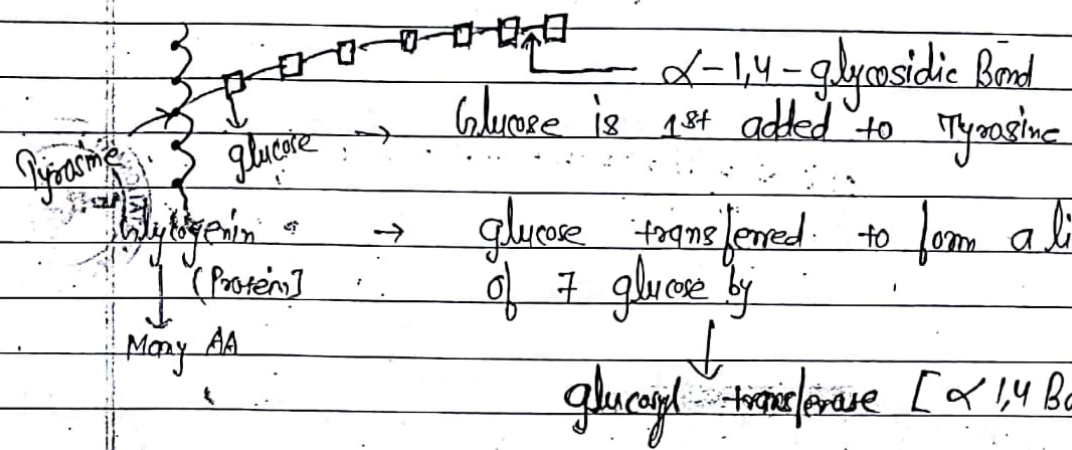 α-1,4-glycosidic Bond
glucose → Glucose is 1st added to Tyrosine
Tyrosine
Glycogenin → glucose transferred to form a li
(Protein] of 7 glucose by
Many AA
glucosyl transferase [α 1,4 Bo